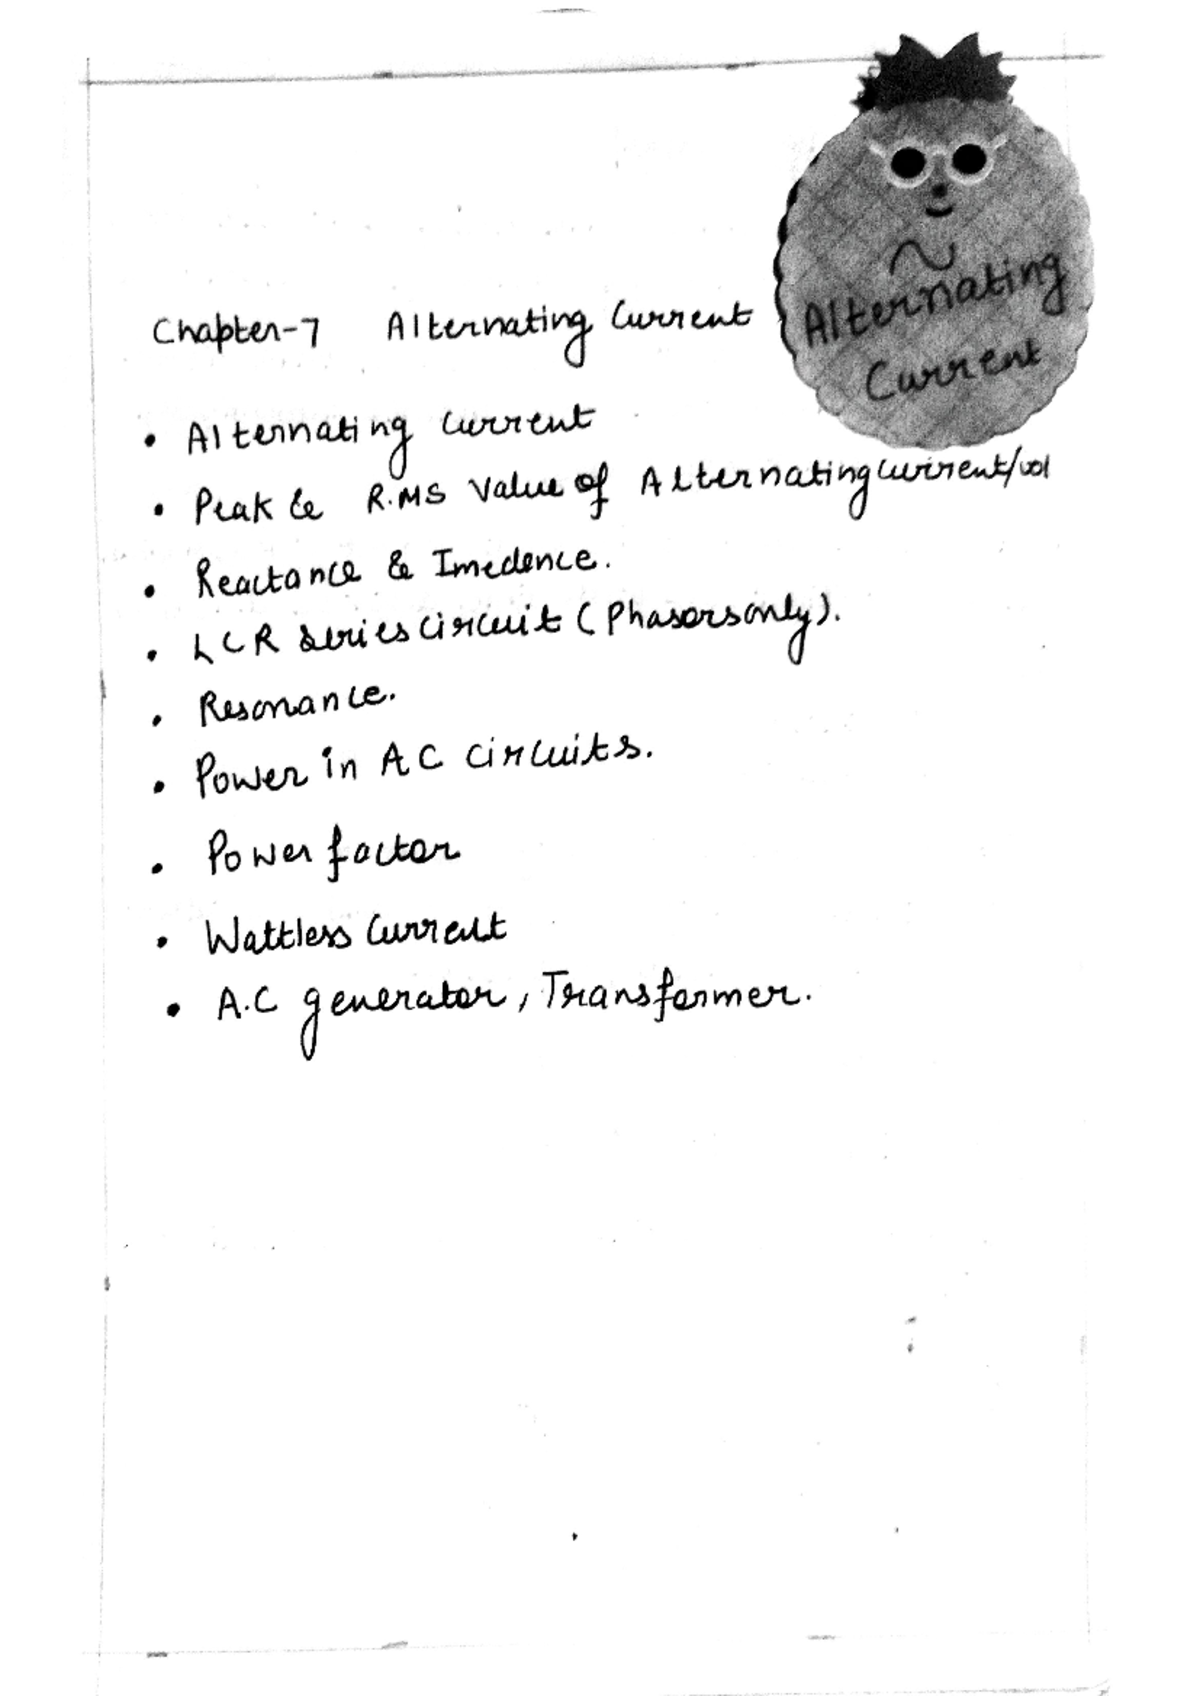 ~
Alternating
Current
Chapter-7 Alternating Current
• Alternating Current
• Peak & R.MS Value of Alternating current/vol
• Reactance & Imedence.
• LCR series circuit (Phasors only).
• Resonance.
• Power in AC circuits.
• Power factor
• Wattless Current
• A.C generator, Transformer.